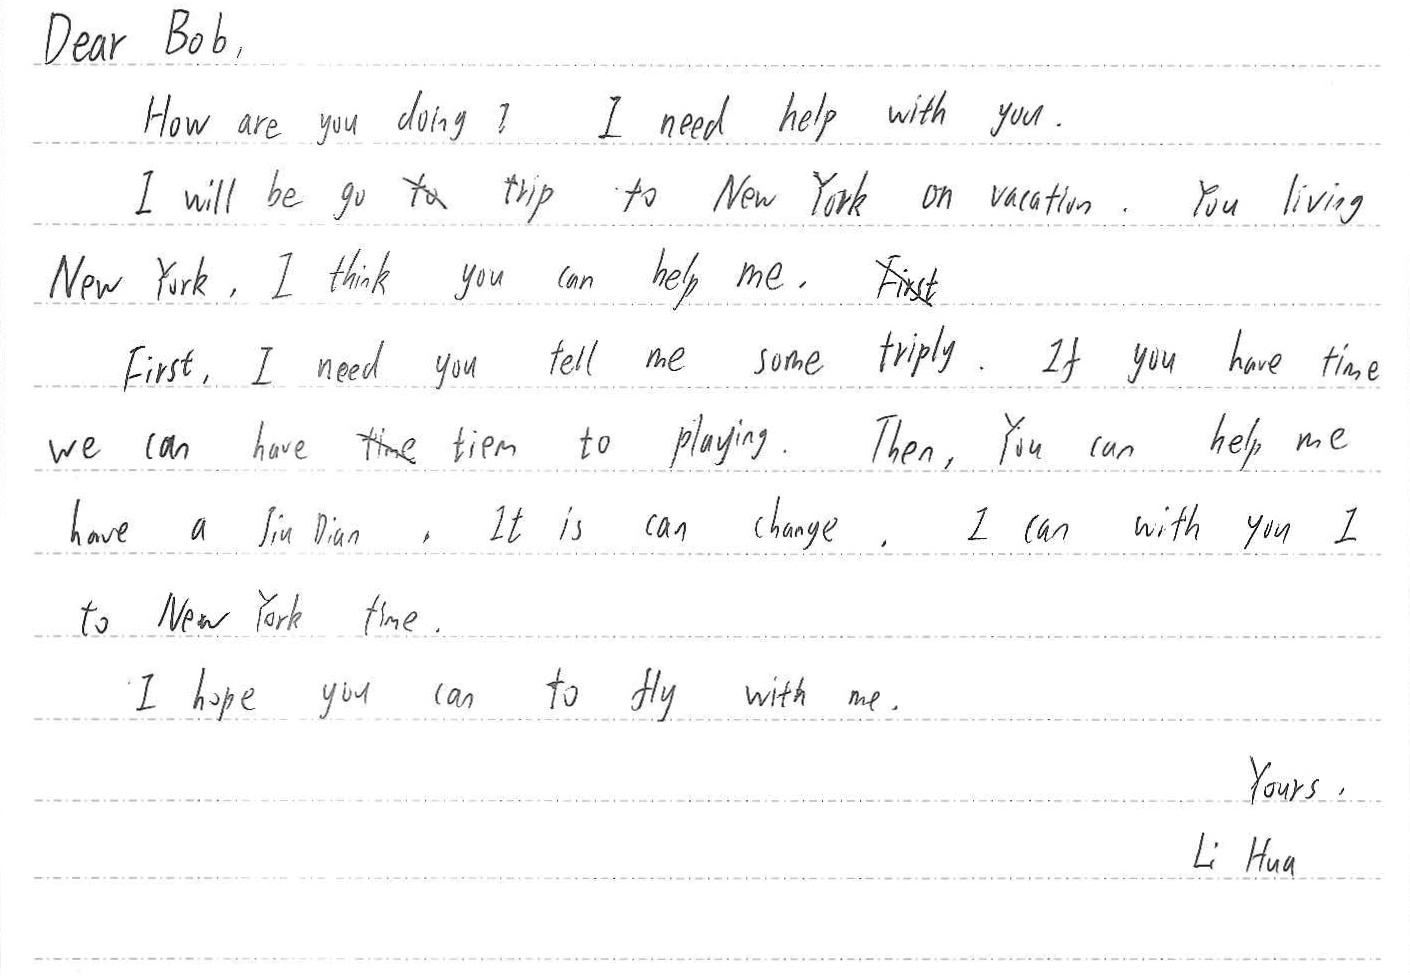 Dear Bob,
How are you doing? I need help with you.
I will be go trip to New York on vacation. You living
New York, I think you can help me.
First, I need you tell me some triply. If you have time
we can have tiem to playing. Then, You can help me
have a Jiu Dian, It is can change. I can with you I
to New York time.
I hope you can to fly with me.
Yours,
Li Hua